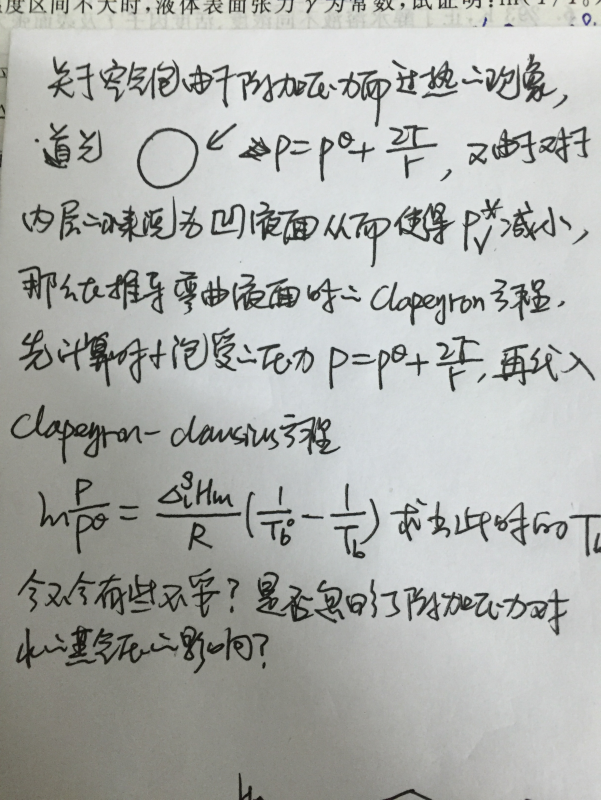 度区间不大时,液体表面张力γ为常数,试证明:
关于空气泡由于附加压力而过热之现象,
道先 P=P^θ+2r/r, 又由于对于
内层之水来说为凹液面从而使得P_V^*减小,
那么在推导弯曲液面时之Clapeyron方程.
先计算时小泡受之压力 P=P^θ+2r/r, 再代入
Clapeyron-clausius方程
ln P/P^θ = Δ_l^g Hm/R (1/T_b° - 1/T_b) 求出此时的T_b
会不会有些不妥?是否忽略了附加压力对
水之蒸气压之影响?